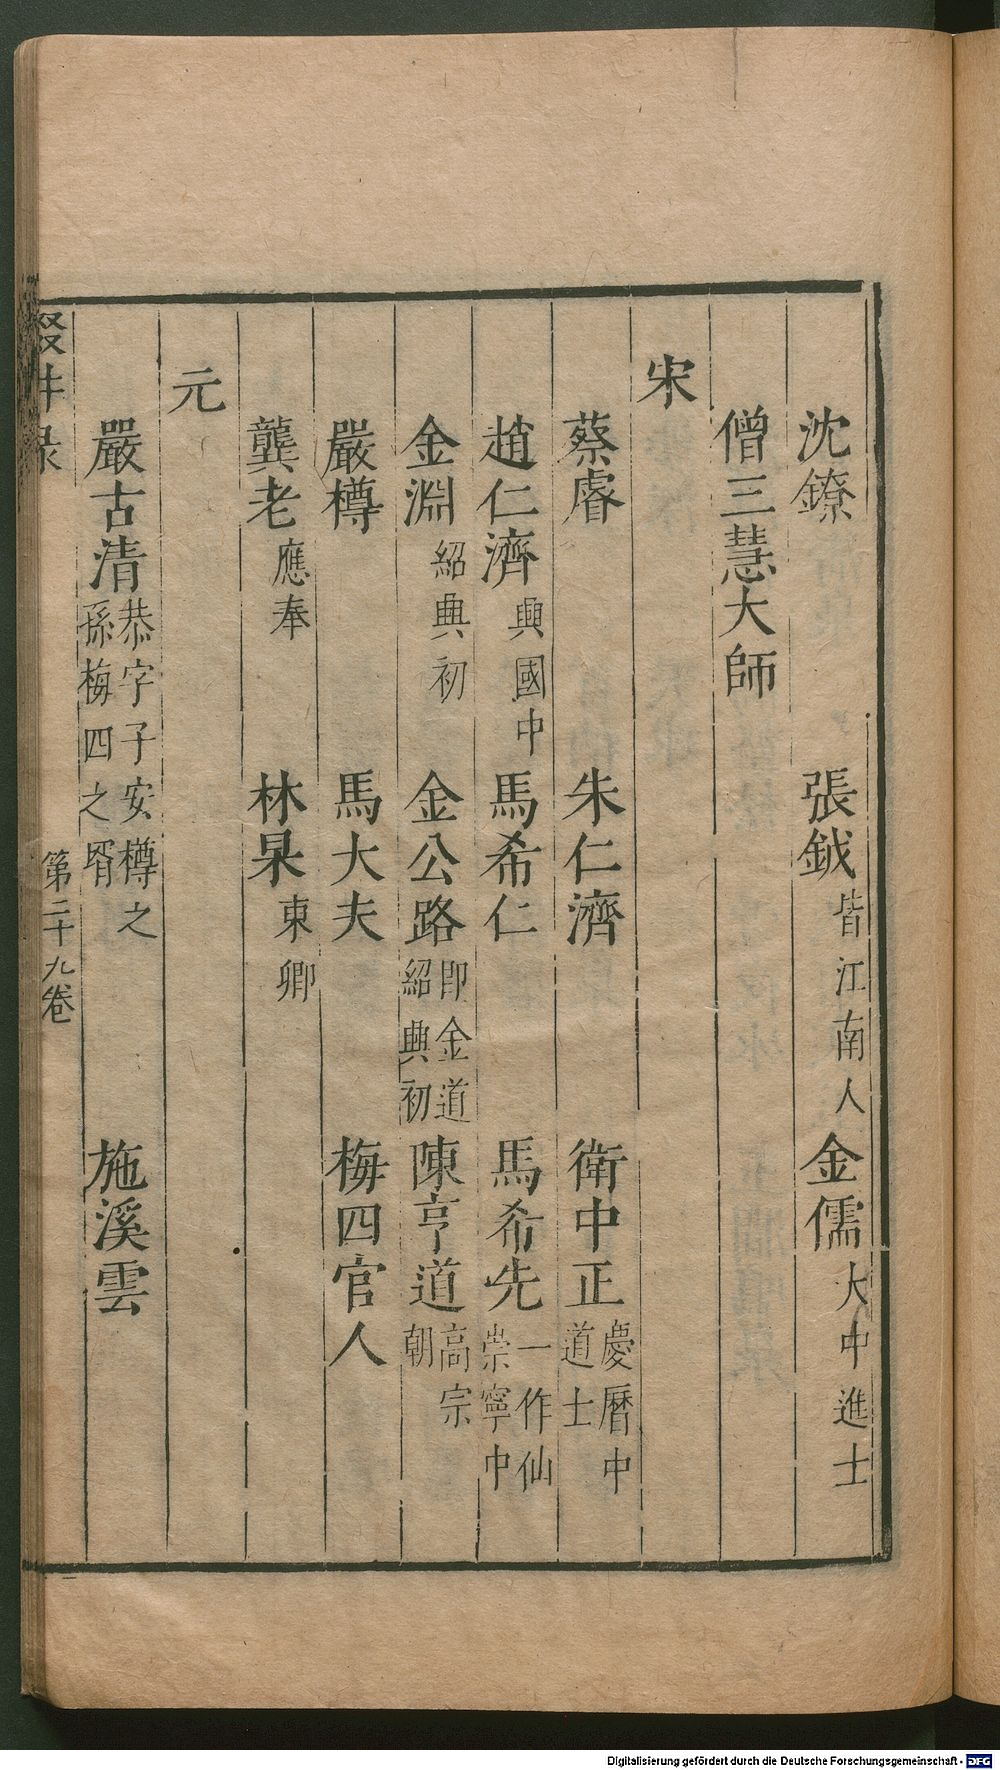 沈鐐　張鉞皆江南人　金儒大中進士
僧三慧大師
宋
蔡睿　朱仁濟　衛中正慶曆中道士
趙仁濟興國中　馬希仁　馬希先一作仙崇寧中
金淵紹興初　金公路即金道紹興初　陳亨道高宗朝
嚴樽　馬大夫　梅四官人
龔老應奉　林杲東卿
元
嚴古清恭字子安樽之孫梅四之壻　施溪雲
輟耕录　第二十九卷
Digitalisierung gefördert durch die Deutsche Forschungsgemeinschaft - DFG